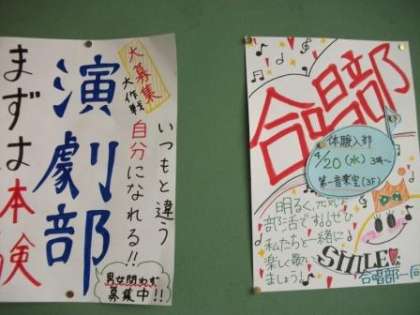 大募集
大作戦
いつもと違う
自分になれる!!
演劇部
まずは体験
男女問わず
募集中!!
合唱部
体験入部
4/20(水)3時〜
第一音楽室(3F)
明るく、元気に
部活をするぜひ
私たちと一緒に
楽しく歌い
ましょう!
SMILE
合唱部一同